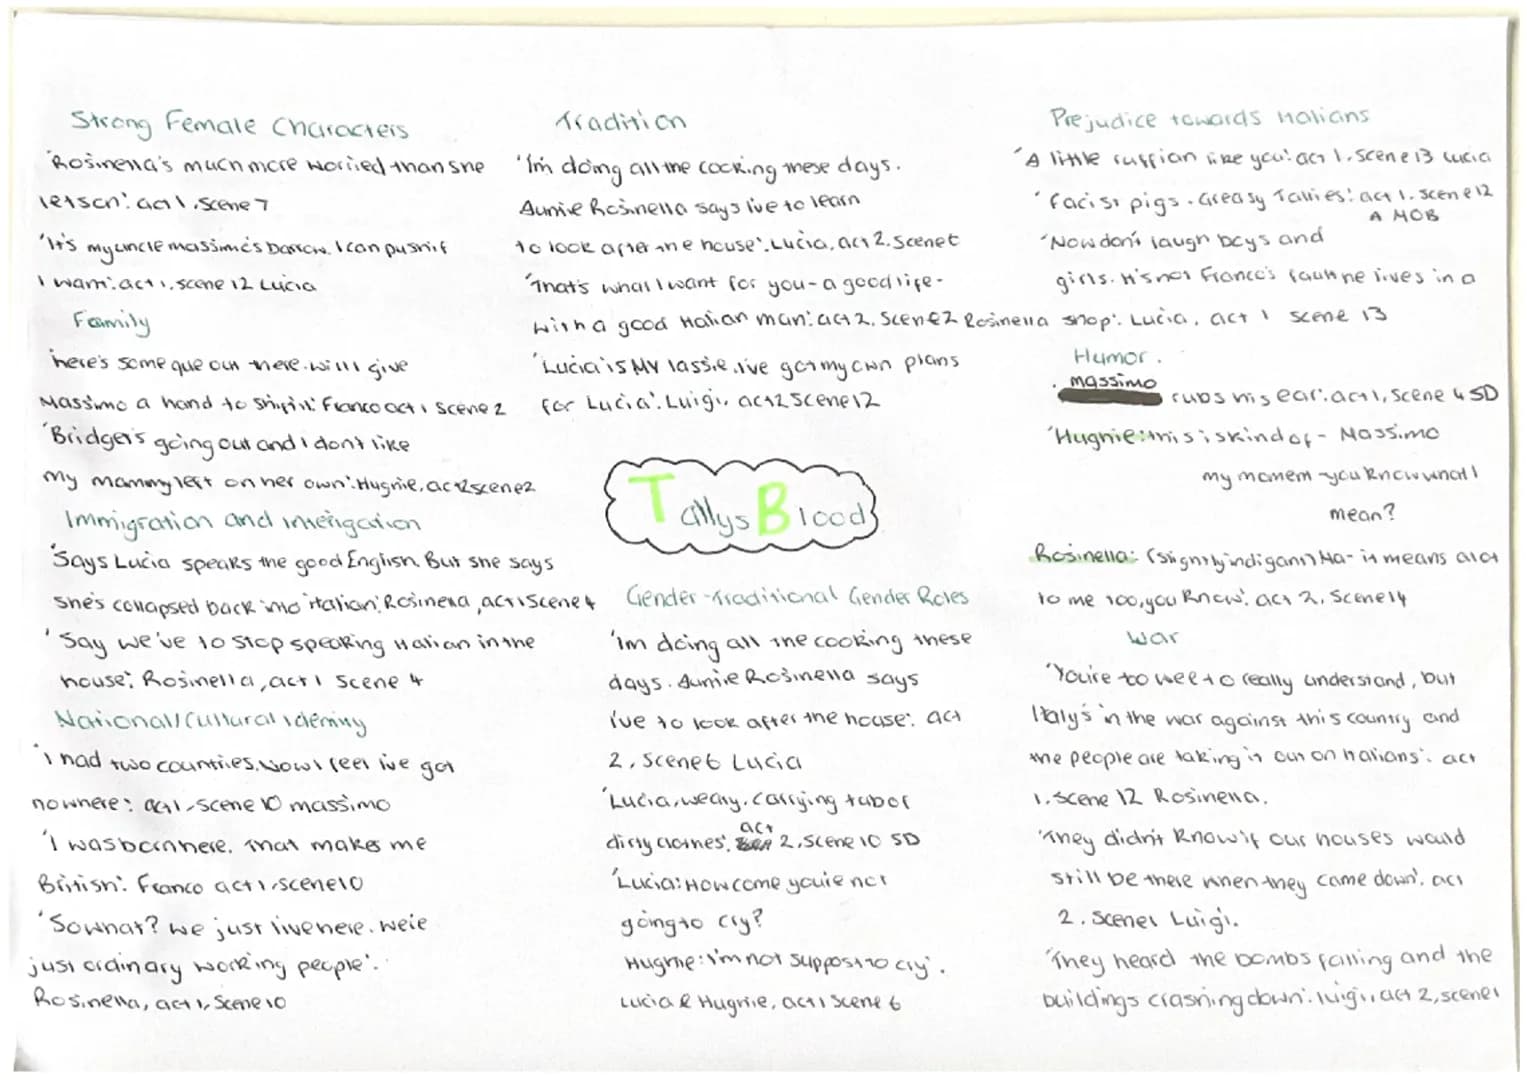 Strong Female Characters
'Rosinella's much more worried than she
lets on'. act 1. Scene 7
'It's my uncle massimo's barrow. I can push if
I want'. act 1, scene 12 Lucia
Family
'here's some que out there. Will I give
Massimo a hand to shift it'. Franco act 1 scene 2
'Bridget's going out and I don't like
my mammy left on her own'. Hughie, act 2 scene 2
Immigration and
'Says Lucia speaks the good English. But she says
she's collapsed back into Italian'. Rosinella, act 1 Scene 4
'Say we've to stop speaking Italian in the
house'. Rosinella, act 1 scene 4
National/Cultural identity
'I had two countries. Now I feel i've got
nowhere'. act 1, scene 10 massimo
'I was born here. That makes me
British'. Franco act 1, scene 10
'So what? we just live here. We're
just ordinary working people'.
Rosinella, act 1, Scene 10
Tradition
'I'm doing all the cooking these days.
Auntie Rosinella says i've to learn
to look after the house'. Lucia, act 2. scene 6
'That's what I want for you - a good life -
with a good Italian man'. act 2, scene 2 Rosinella
'Lucia is MY lassie. i've got my own plans
for Lucia'. Luigi, act 2 scene 12
Tallys Blood
Gender - Traditional Gender Roles
'I'm doing all the cooking these
days. Auntie Rosinella says
i've to look after the house'. act
2, Scene 6 Lucia
'Lucia, weary, carrying tub of
dirty clothes'. act 2, Scene 10 SD
'Lucia: How come you're not
going to cry?
Hughie: I'm not suppost to cry'.
Lucia & Hughie, act 1 Scene 6
Prejudice towards Italians
'A little ruffian like you' act 1. Scene 13 Lucia
'Facist pigs. Greasy Tallies'. act 1. scene 12
A MOB
'Now don't laugh boys and
girls. It's not Franco's fault he lives in a
shop'. Lucia, act 1 scene 13
Humor.
massimo
rubs his ear'. act 1, Scene 4 SD
'Hughie: this is kind of - Massimo
my moment - you know what I
mean?
Rosinella: (slightly indigant) Ha - it means alot
to me too, you know'. act 2. Scene 14
War
'You're too wee to really understand, but
Italy's in the war against this country and
the people are taking it out on Italians'. act
1. scene 12 Rosinella.
'They didn't know if our houses would
still be there when they came down'. act
2. Scene 1 Luigi.
'They heard the bombs falling and the
buildings crashing down'. luigi, act 2, scene 1